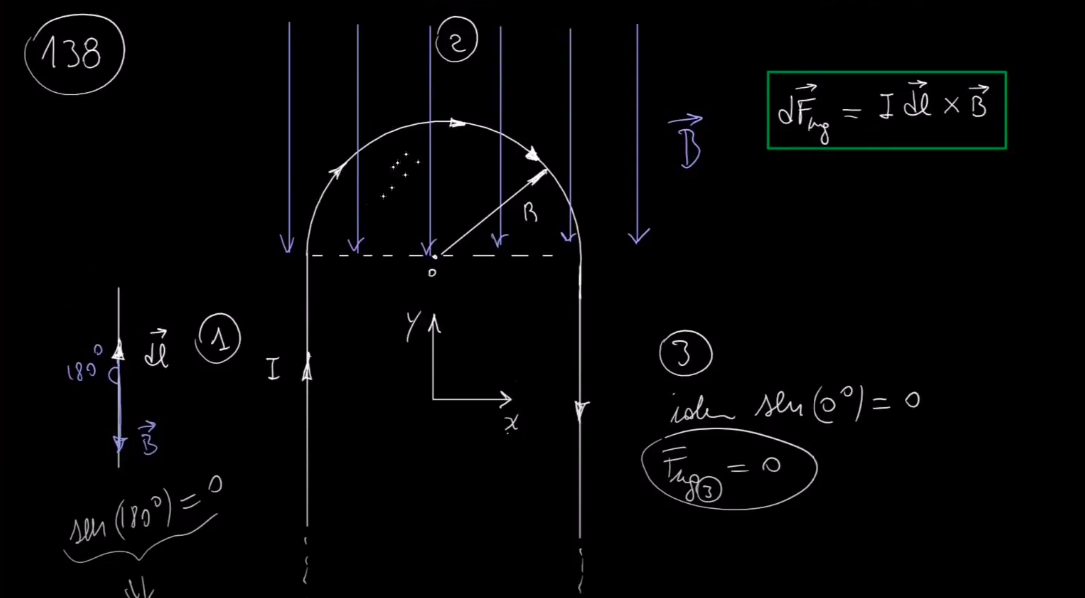 138
2
dF⃗mg = I dl⃗ × B⃗
B⃗
R
O
y
x
1
180°
dl⃗
B⃗
I
sen(180°) = 0
⇓
3
idem sen(0°) = 0
Fmg③ = 0